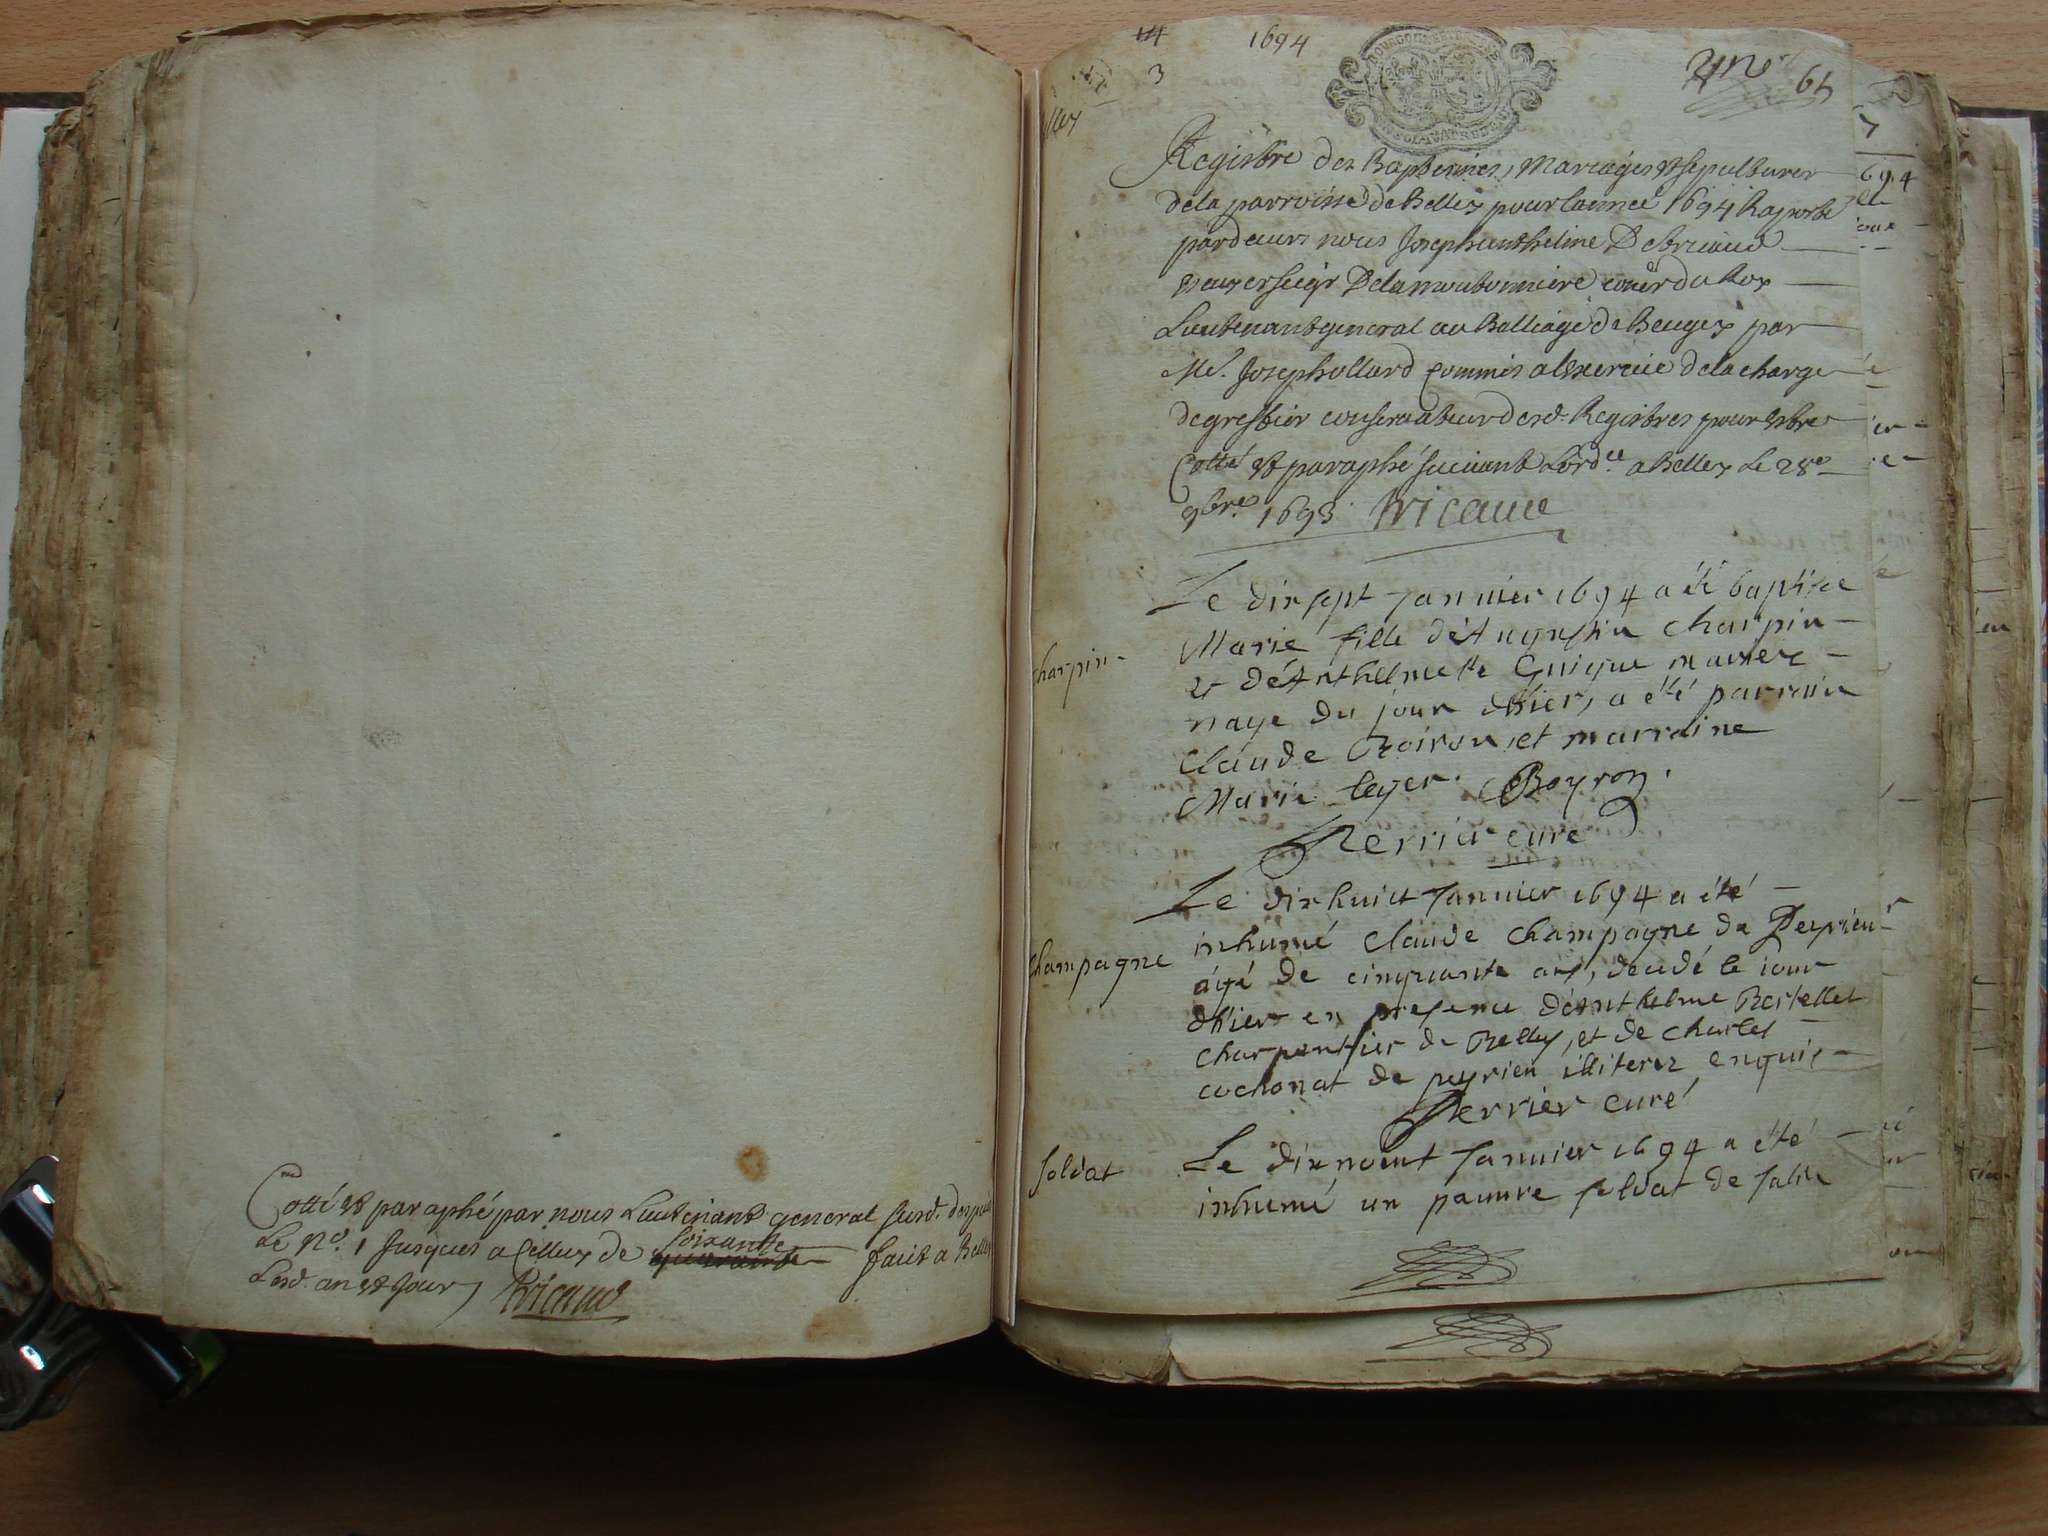 Cotté et paraphé par nous Lieutenant general susd. despuis
Le no. 1 Jusques a Celluy de soixante faict a Belley
Lesd. an et Jour Bricaud
14 1694
3
64
Registre des Baptesmes, Mariages et sepultures
dela parroisse de Belley pour lannee 1694 Raporté
pardevant nous Joseph anthelme De bricaud
escuyer seigr Delamoutonniere coner du Roy
Lieutenant general au Balliage de Beugey par
Me. Joseph ollard Commis a lexercice dela charge
de greffier conservateur desd. Registres pour estre
Cotté et paraphé suivant Lordce a Belley Le 28e
9bre 1693 Bricaud
Le dix sept Janvier 1694 a été baptisée
charpin
Marie fille d'Augustin charpin
et d'Anthelmette Guigue mariez
naye du jour dhier, a été parrain
claude Boiron, et marraine
Marie leyer. Boyron.
Perrier curé
Le dixhuict Janvier 1694 a été
champagne
inhumé claude champagne de Peyrieu
agé de cinquante ans, decedé le jour
dhier en presence d'anthelme Bertellet
charpentier de Belley, et de charles
cochonat de peyrieu illiterez enquis
Perrier curé
soldat
Le dixneuf Janvier 1694 a été
inhumé un pauvre soldat de